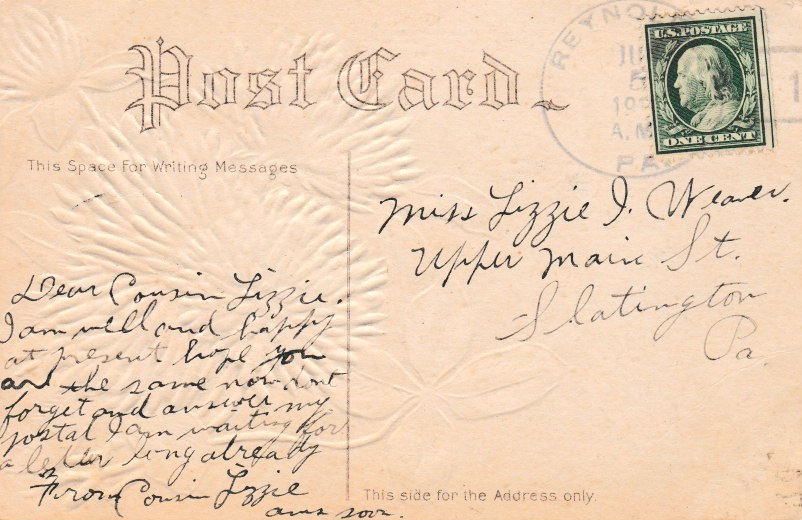 Post Card
REYNOL
5
19
A.M.
PA
U.S. POSTAGE
ONE CENT
1
This Space For Writing Messages
Miss Lizzie I. Weaver.
Upper Main St.
Slatington
Pa.
Dear Cousin Lizzie.
I am well and happy
at present hope you
are the same now dont
forget and answer my
postal I am waiting for
a letter long already
From Cousin Lizzie
ans soon.
This side for the Address only.